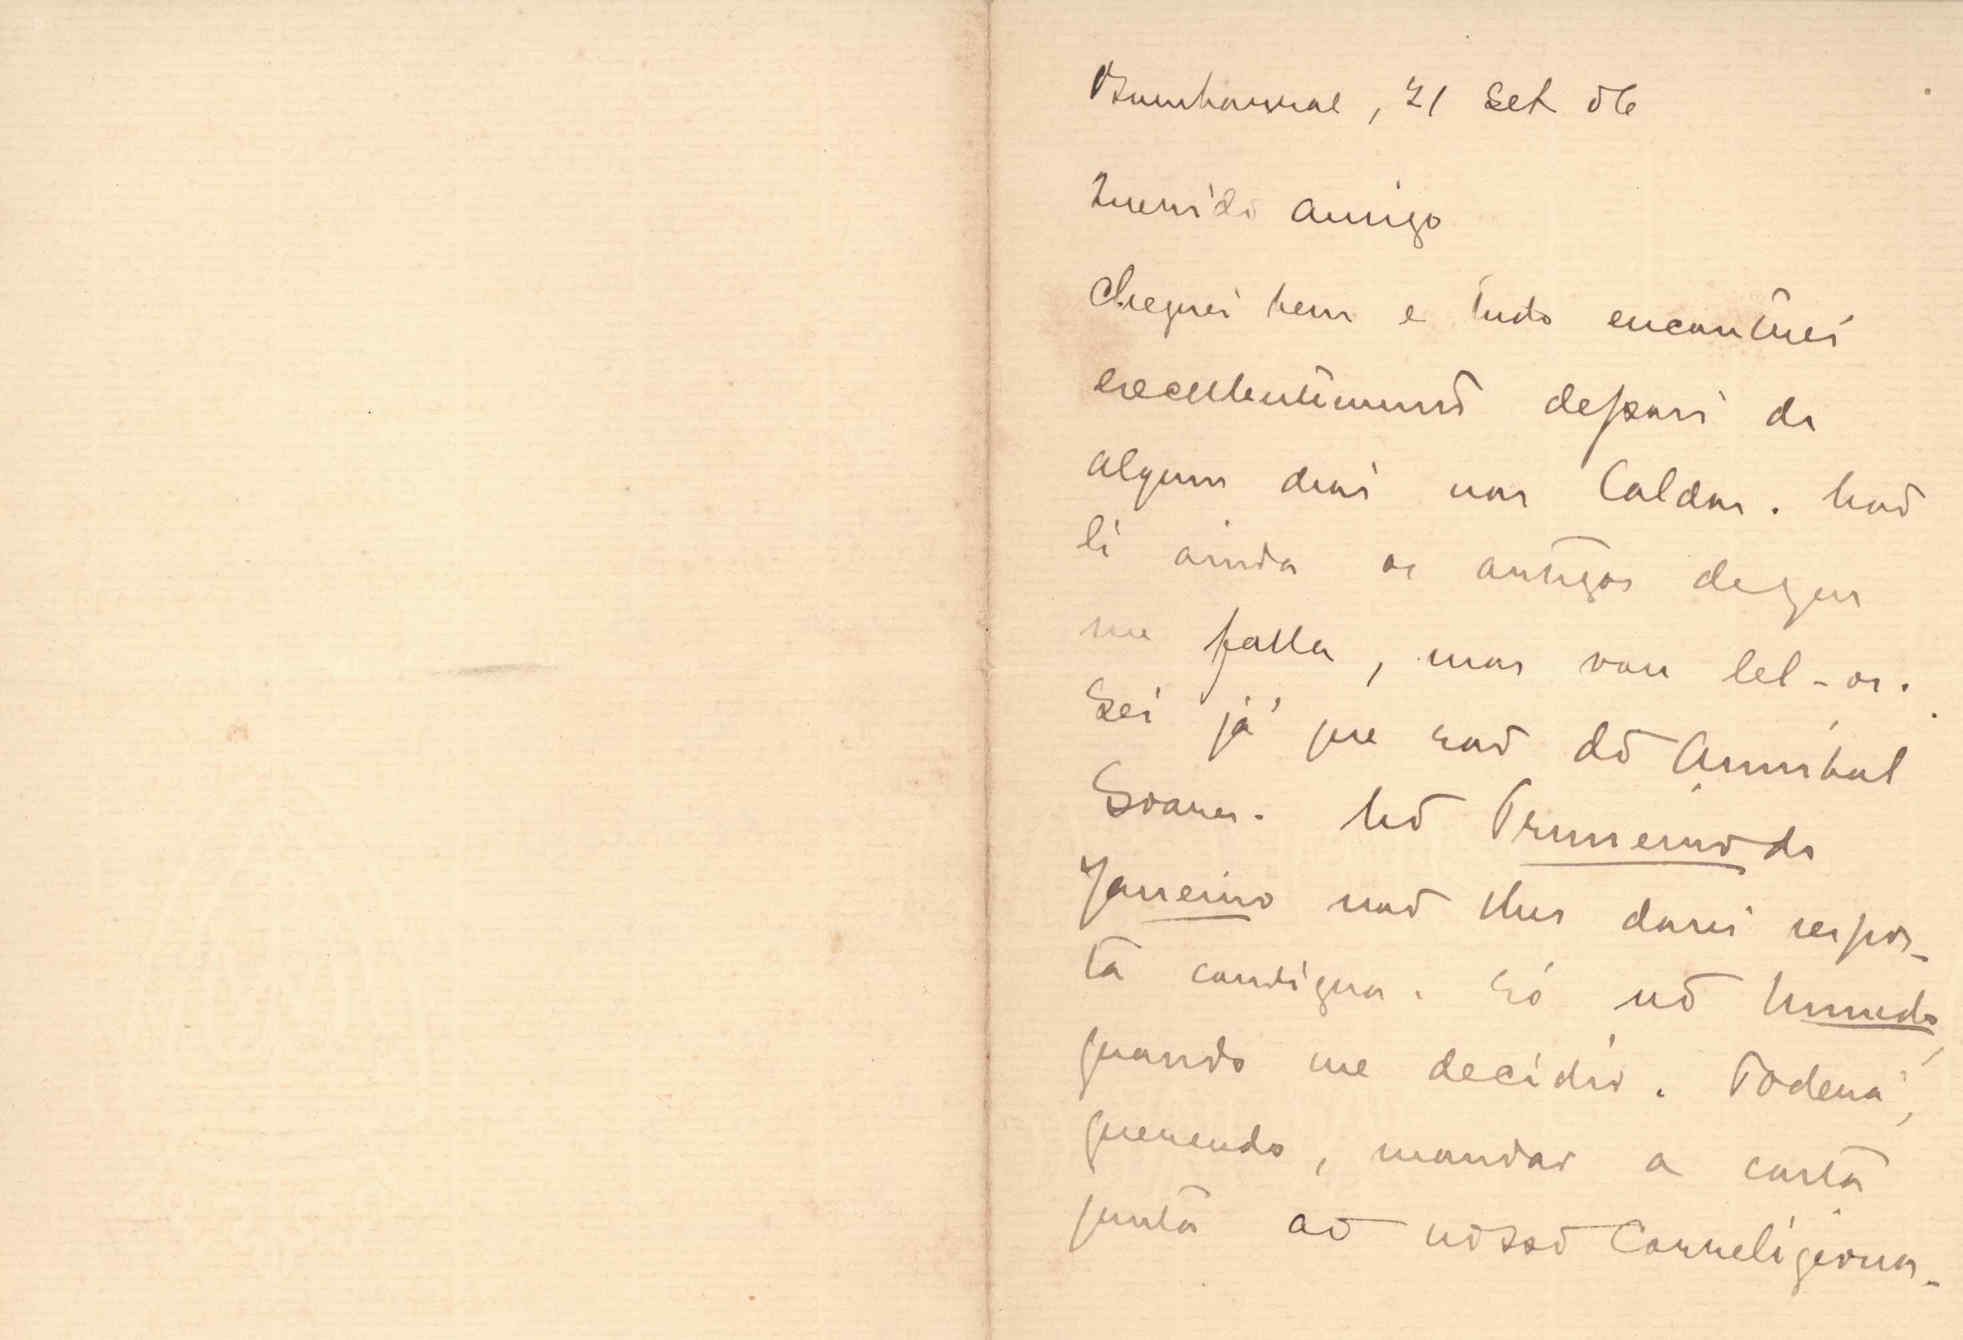 Bombarral, 21 Set 06
Querido amigo
Cheguei bem e tudo encontrei
excellentemente depois de
alguns dias nas Caldas. Não
li ainda os artigos de que
me falla, mas vou lel-os.
Sei já que são do Annibal
Soares. No Primeiro de
Janeiro não lhes darei respos-
ta condigna. Só no Mundo,
quando me decidir. Poderá,
querendo, mandar a carta
junta ao nosso Correligiona-